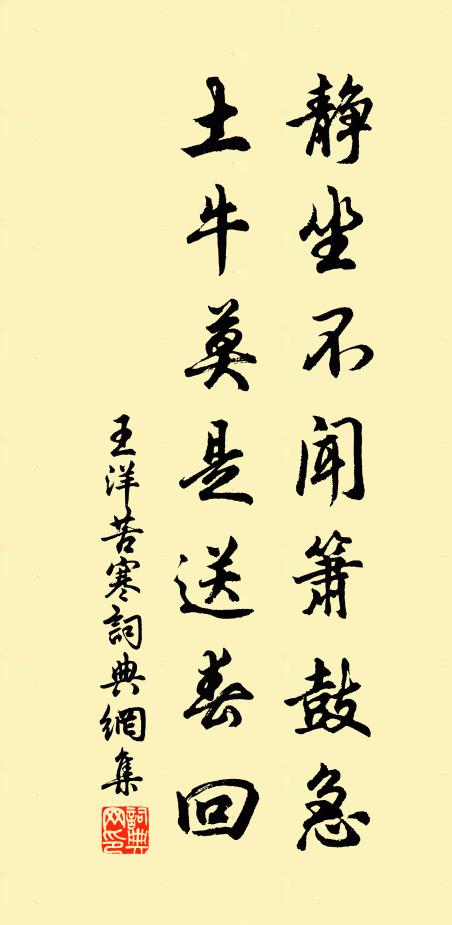 静坐不闻箫鼓急
土牛莫是送春回
王洋苦寒詞典網集
詞典网印